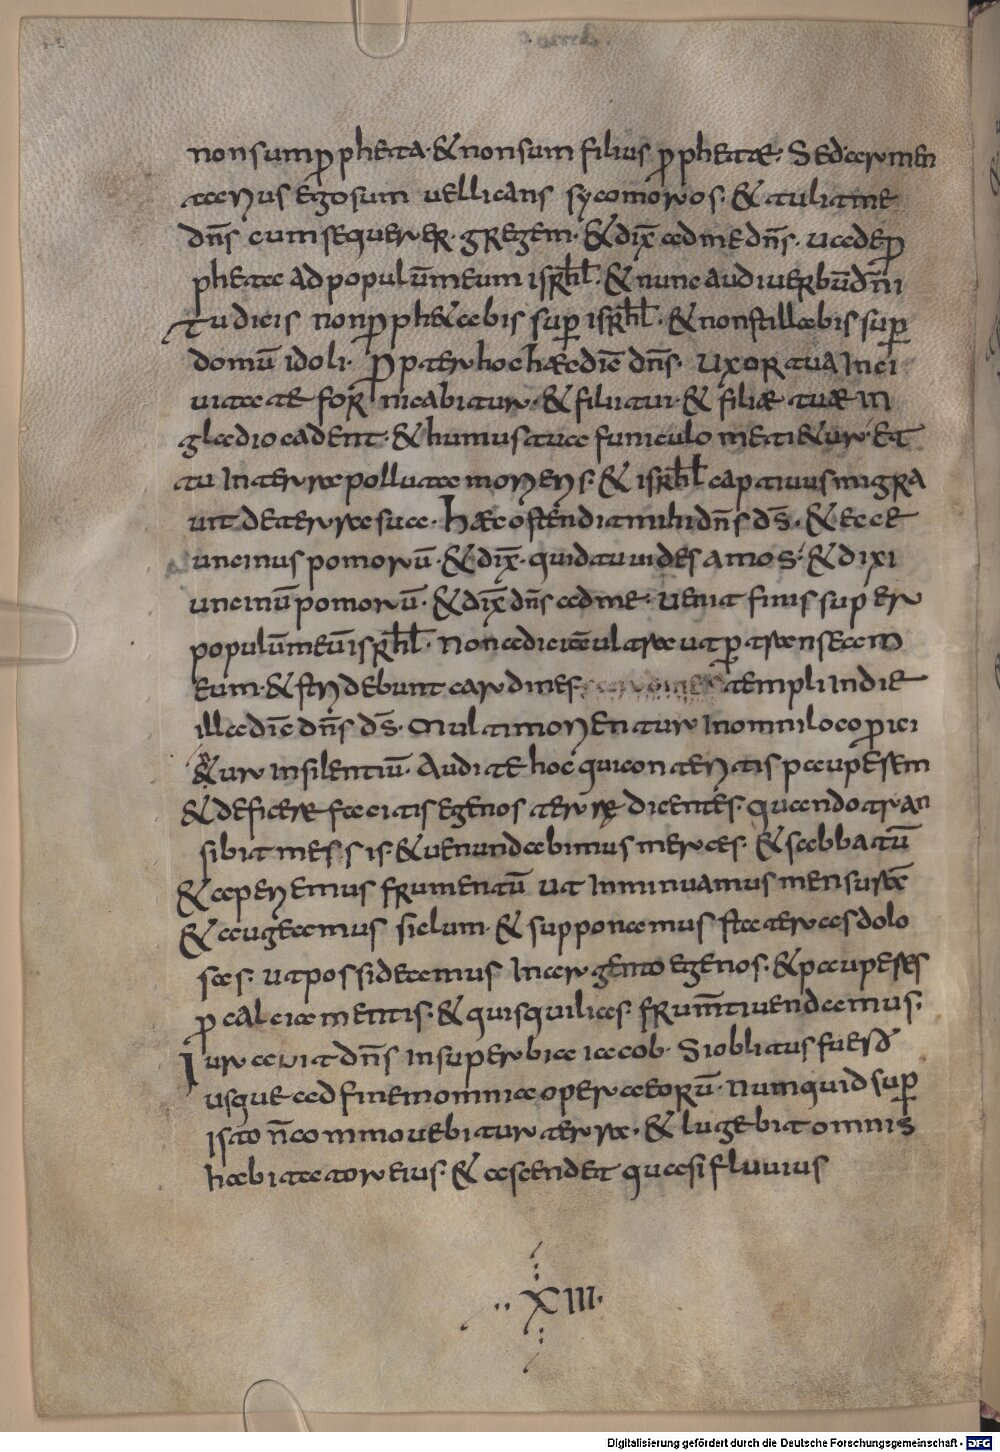 non sum ꝓpheta· & non sum filius ꝓphetæ· Sed armen
tarius ego sum uellicans sycomoros· & tulit me
dn̄s cum sequerer gregem· & dix̄ ad me dn̄s· uade ꝓ
pheta ad populū meum isrhl̄· & nunc audi uerbū dn̄i
Tu dicis non ꝓphetabis sup̱ isrhl̄· & non stillabis sup̱
domū idoli· Ꝓpter hoc hæc dic̄ dn̄s· Uxor tua in ci
uitate fornicabitur· & filii tui· & filiæ tuæ in
gladio cadent· & humus tua funiculo meti&ur· Et
tu in terra polluta morieris· & isrhl̄ captiuus migra
uit de terra sua· Hæc ostendit mihi dn̄s ds̄· & ecce
uncinus pomorū· & dix̄· quid tu uides amos· & dixi
uncinū pomorū· & dix̄ dn̄s ad me· uenit finis super
populū meū isrhl̄· non adiciā ultra ut ꝑtranseam
eum· & stridebunt cardines templi in die
illa dic̄ dn̄s ds̄· Multi morientur in omni loco ꝓici
&ur in silentiū· Audite hoc qui conteritis pauperem
& deficere facitis egenos terrę dicentes· quando tran
sibit messis· & uenundabimus merces· & sabbatū
& aperiemus frumentū ut inminuamus mensurā
& augeamus siclum· & supponamus stateras dolo
sas· ut possideamus in argento egenos· & pauperes
ꝓ calciamentis· & quisquilias frum̄ti uendamus·
Iurauit dn̄s in superbia iacob· Si oblitus fuero
usque ad finem omnia opera eorū· Numquid sup̱
isto n̄ commouebitur terra· & lugebit omnis
habitator eius· & ascendet quasi fluuius
XIII·
Digitalisierung gefördert durch die Deutsche Forschungsgemeinschaft - DFG